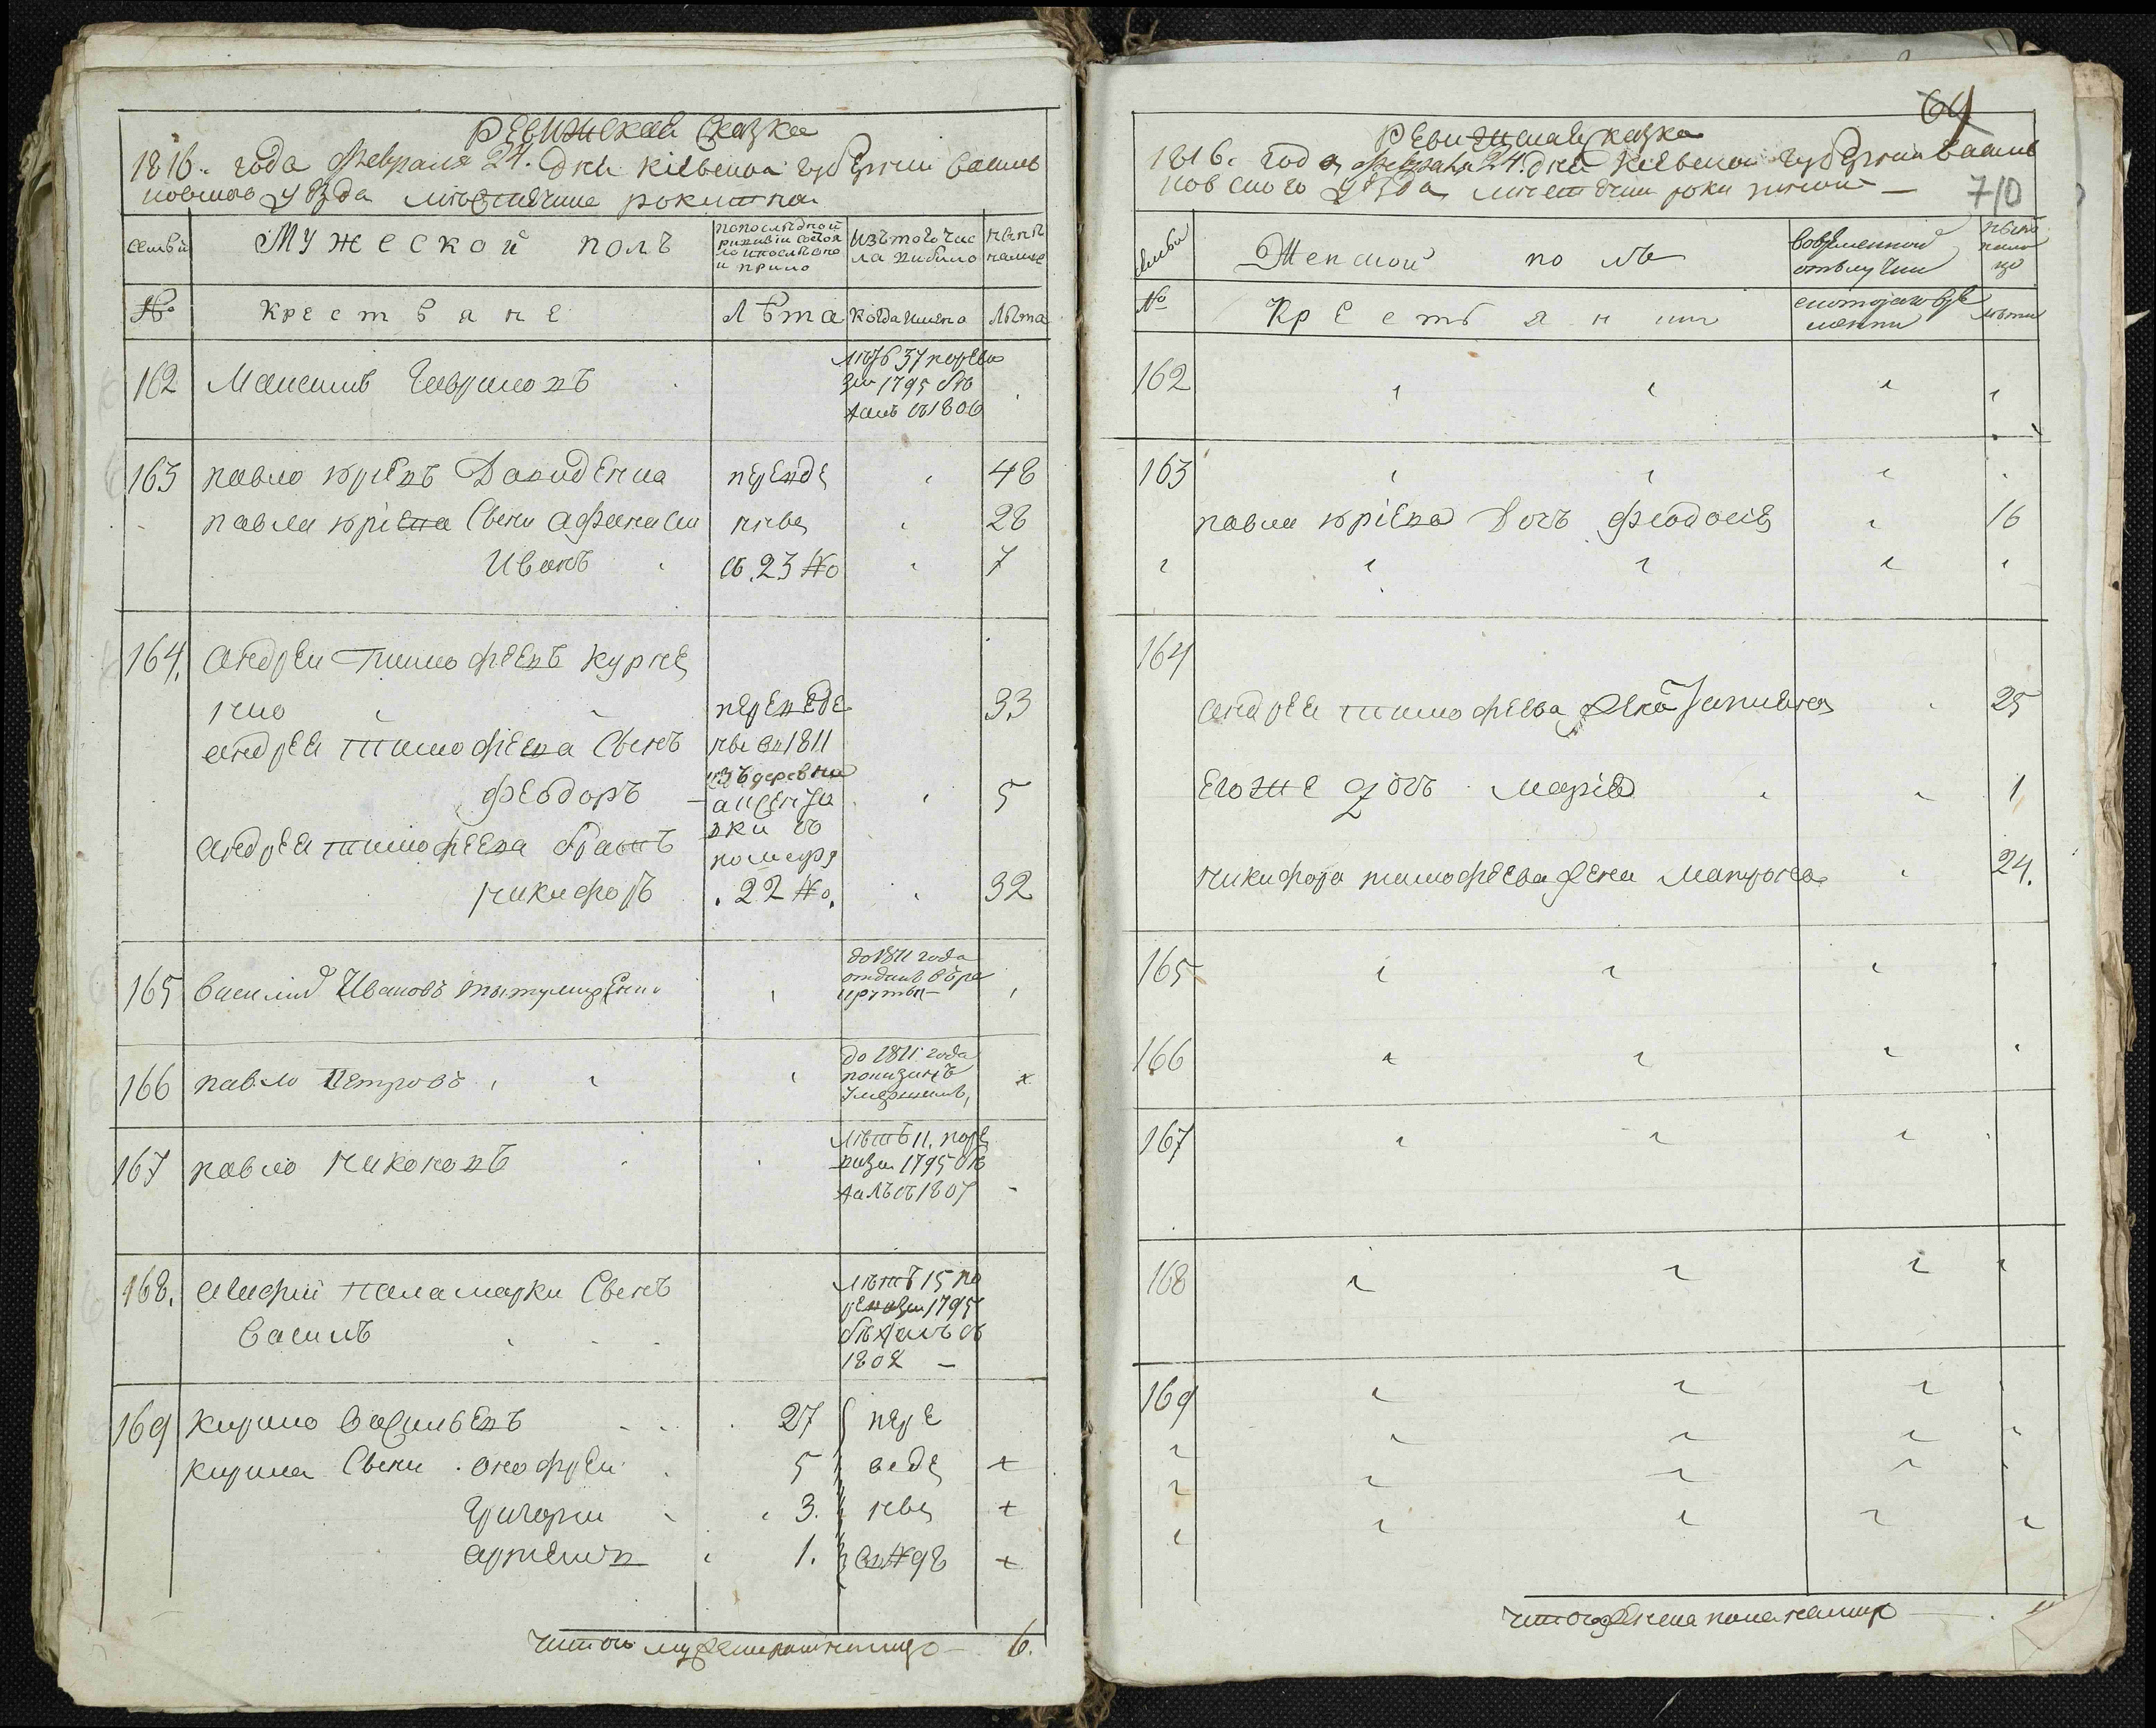 Ревижская Сказка
1816. года Февраля 24. дня Кіевской губернии василь
ковского уезда местечка рокитна
семьи
Мужеской полъ
по последной
ревизіи состоя
ло и после оно
и прибыло
Изътого чис
ла выбыло
ныне
налице
№
Крестьяне
Лѣта
когда имено
Лѣта
162
Максимъ Гаврыловъ
летъ 37 пореви
зіи 1795 бѣ
жалъ въ1806
163
павло юріевъ Давиденка
переведе
48
павла юріева Сыны Афанасии
ныве
28
Иванъ
съ.23 №
7
164.
андреи тимофеевъ курне
нко
переведе
33
андрея тимофеева Сынъ
ны въ1811
изъдеревни
Феодоръ
5
андрея тимофеева братъ
подъ
номеръ
никифоръ
.22 №.
32
165
василий Ивановъ
до1811 года
отданъ вре
круты
166
павло Петровъ
до 1811 года
показанъ
умершимъ,
167
павло никоновъ
Летъ 11. поре
визіи 1795 бѣ
жалъ въ1807
168.
паламарки Сынъ
Василь
летъ 15 по
ревизіи 1795
бѣжалъ въ
1802 –
169
кирило васильевъ
27
пере
кирила Сыны . онофреи
5
веде
+
Григории
3.
ныя
+
артемин
1.
въ№98
+
Итого мужеска налицо –
6.
64
710
Ревижская Сказка
1816. года февраля 24. дня Кіевской губернии василь
ковского уезда местечки рокитной –
семьи
Женской
полъ
вовременной
отлучки
ныне
нали
цо
№
Крестьянки
скоторого вре
мени
лета
162
163
павла юріева дочь феодосия
16
164
андрея тимофеева жена
25
егоже дочь Марія
1
никифора тимофеева жена матрона
24.
165
166
167
168
169
Итого женска пола налицо